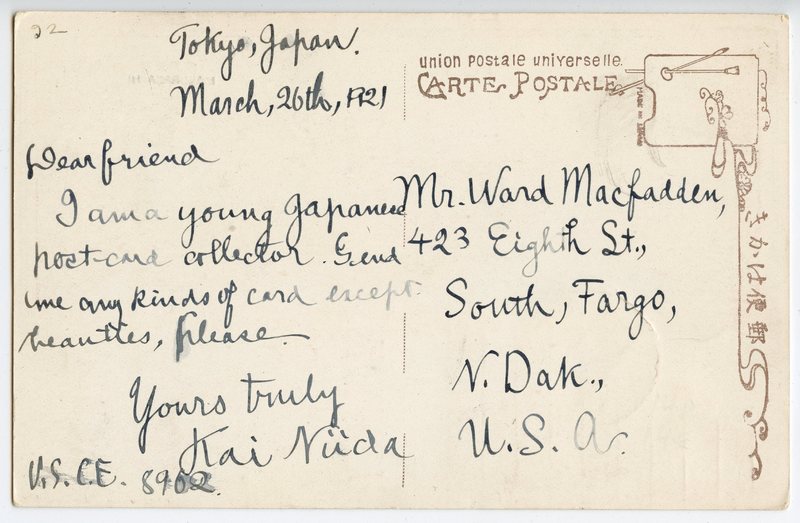 92
Tokyo, Japan.
March, 26th, 1921
Dear friend
I am a young Japanese
post-card collector. Send
me any kinds of card except
beauties, please.
Yours truly
Kai Niida
U.S.C.E. 8902.
union postale universelle.
CARTE POSTALE
MADE IN
Mr. Ward Macfadden,
423 Eighth St.,
South, Fargo,
N. Dak.,
U.S.A.
きかは便郵